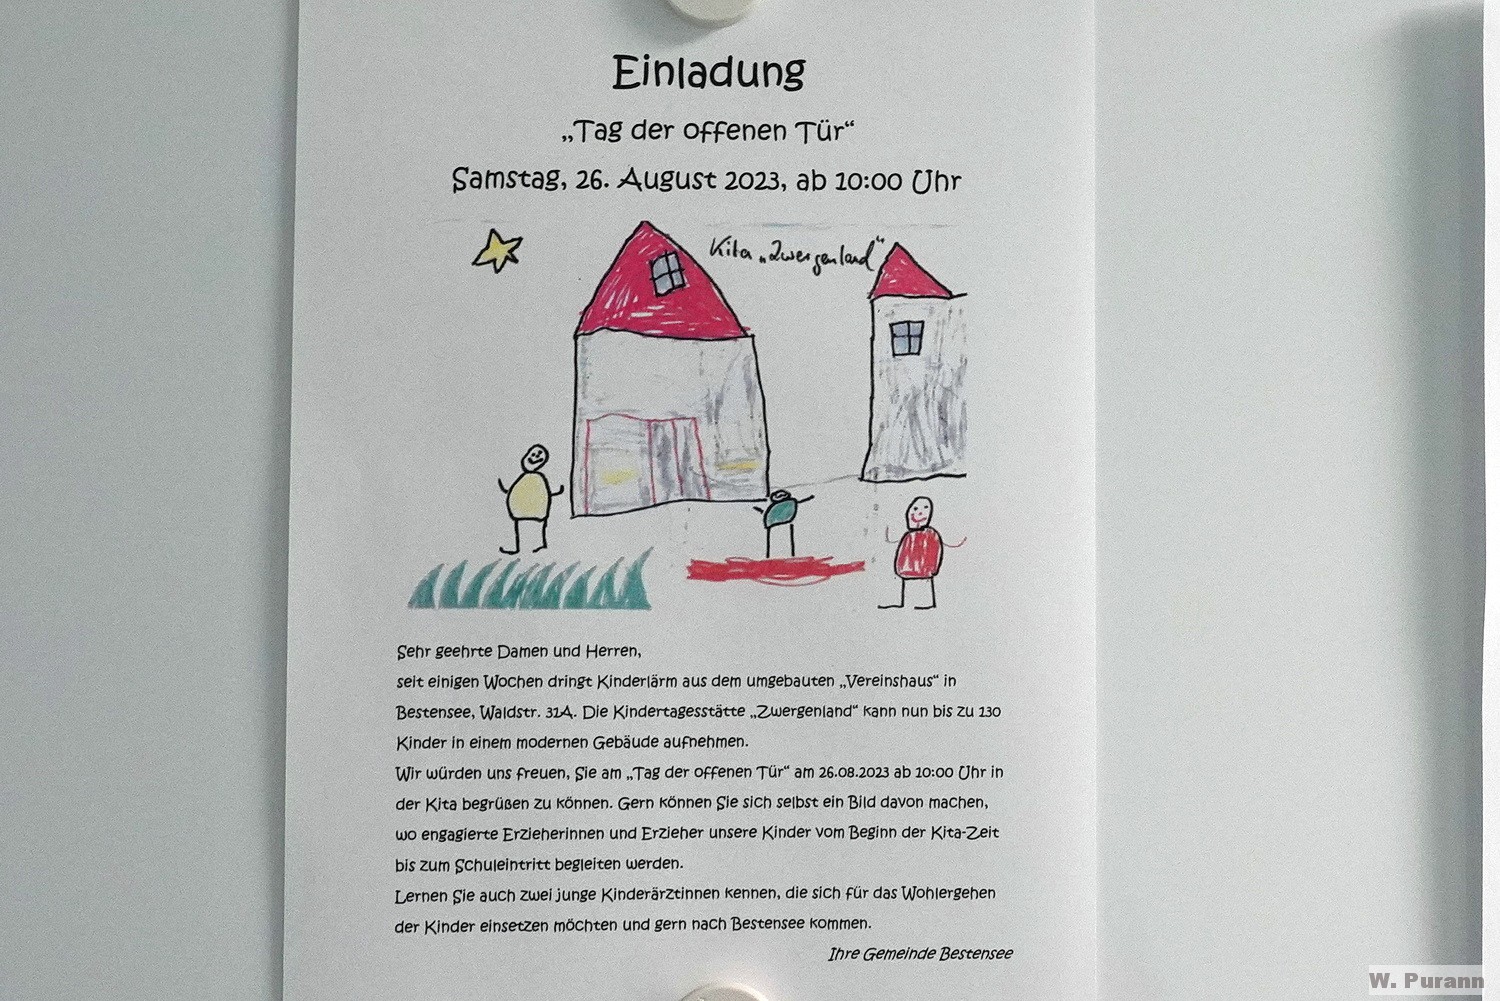 Einladung
„Tag der offenen Tür“
Samstag, 26. August 2023, ab 10:00 Uhr
Kita „Zwergenland“
Sehr geehrte Damen und Herren,
seit einigen Wochen dringt Kinderlärm aus dem umgebauten „Vereinshaus“ in
Bestensee, Waldstr. 31A. Die Kindertagesstätte „Zwergenland“ kann nun bis zu 130
Kinder in einem modernen Gebäude aufnehmen.
Wir würden uns freuen, Sie am „Tag der offenen Tür“ am 26.08.2023 ab 10:00 Uhr in
der Kita begrüßen zu können. Gern können Sie sich selbst ein Bild davon machen,
wo engagierte Erzieherinnen und Erzieher unsere Kinder vom Beginn der Kita-Zeit
bis zum Schuleintritt begleiten werden.
Lernen Sie auch zwei junge Kinderärztinnen kennen, die sich für das Wohlergehen
der Kinder einsetzen möchten und gern nach Bestensee kommen.
Ihre Gemeinde Bestensee
W. Purann